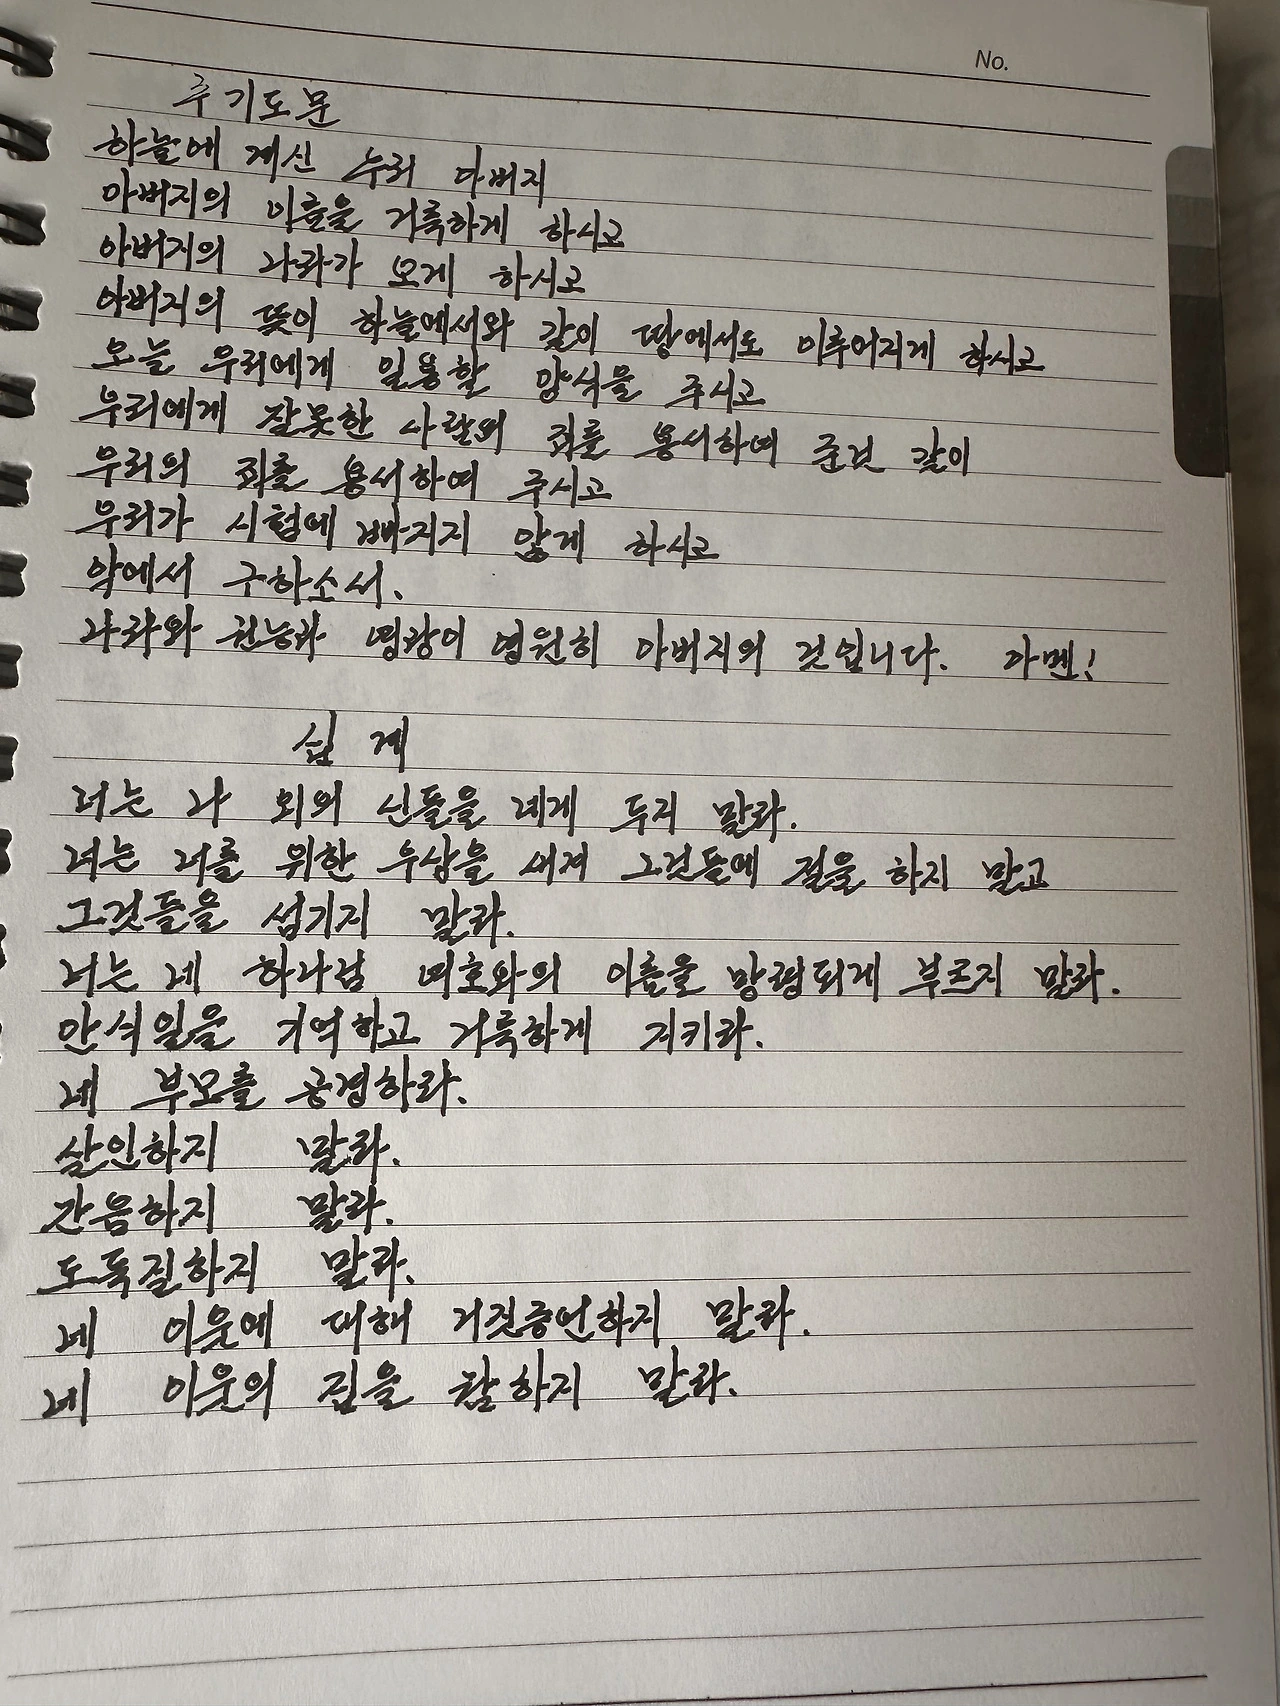 No.
주기도문
하늘에 계신 우리 아버지
아버지의 이름을 거룩하게 하시고
아버지의 나라가 오게 하시고
아버지의 뜻이 하늘에서와 같이 땅에서도 이루어지게 하시고
오늘 우리에게 일용할 양식을 주시고
우리에게 잘못한 사람의 죄를 용서하여 준것 같이
우리의 죄를 용서하여 주시고
우리가 시험에 빠지지 않게 하시고
악에서 구하소서.
나라와 권능과 영광이 영원히 아버지의 것입니다. 아멘!
십 계
너는 나 외의 신들을 네게 두지 말라.
너는 너를 위한 우상을 새겨 그것들에 절을 하지 말고
그것들을 섬기지 말라.
너는 네 하나님 여호와의 이름을 망령되게 부르지 말라.
안식일을 기억하고 거룩하게 지키라.
네 부모를 공경하라.
살인하지 말라.
간음하지 말라.
도둑질하지 말라.
네 이웃에 대해 거짓증언하지 말라.
네 이웃의 집을 탐하지 말라.